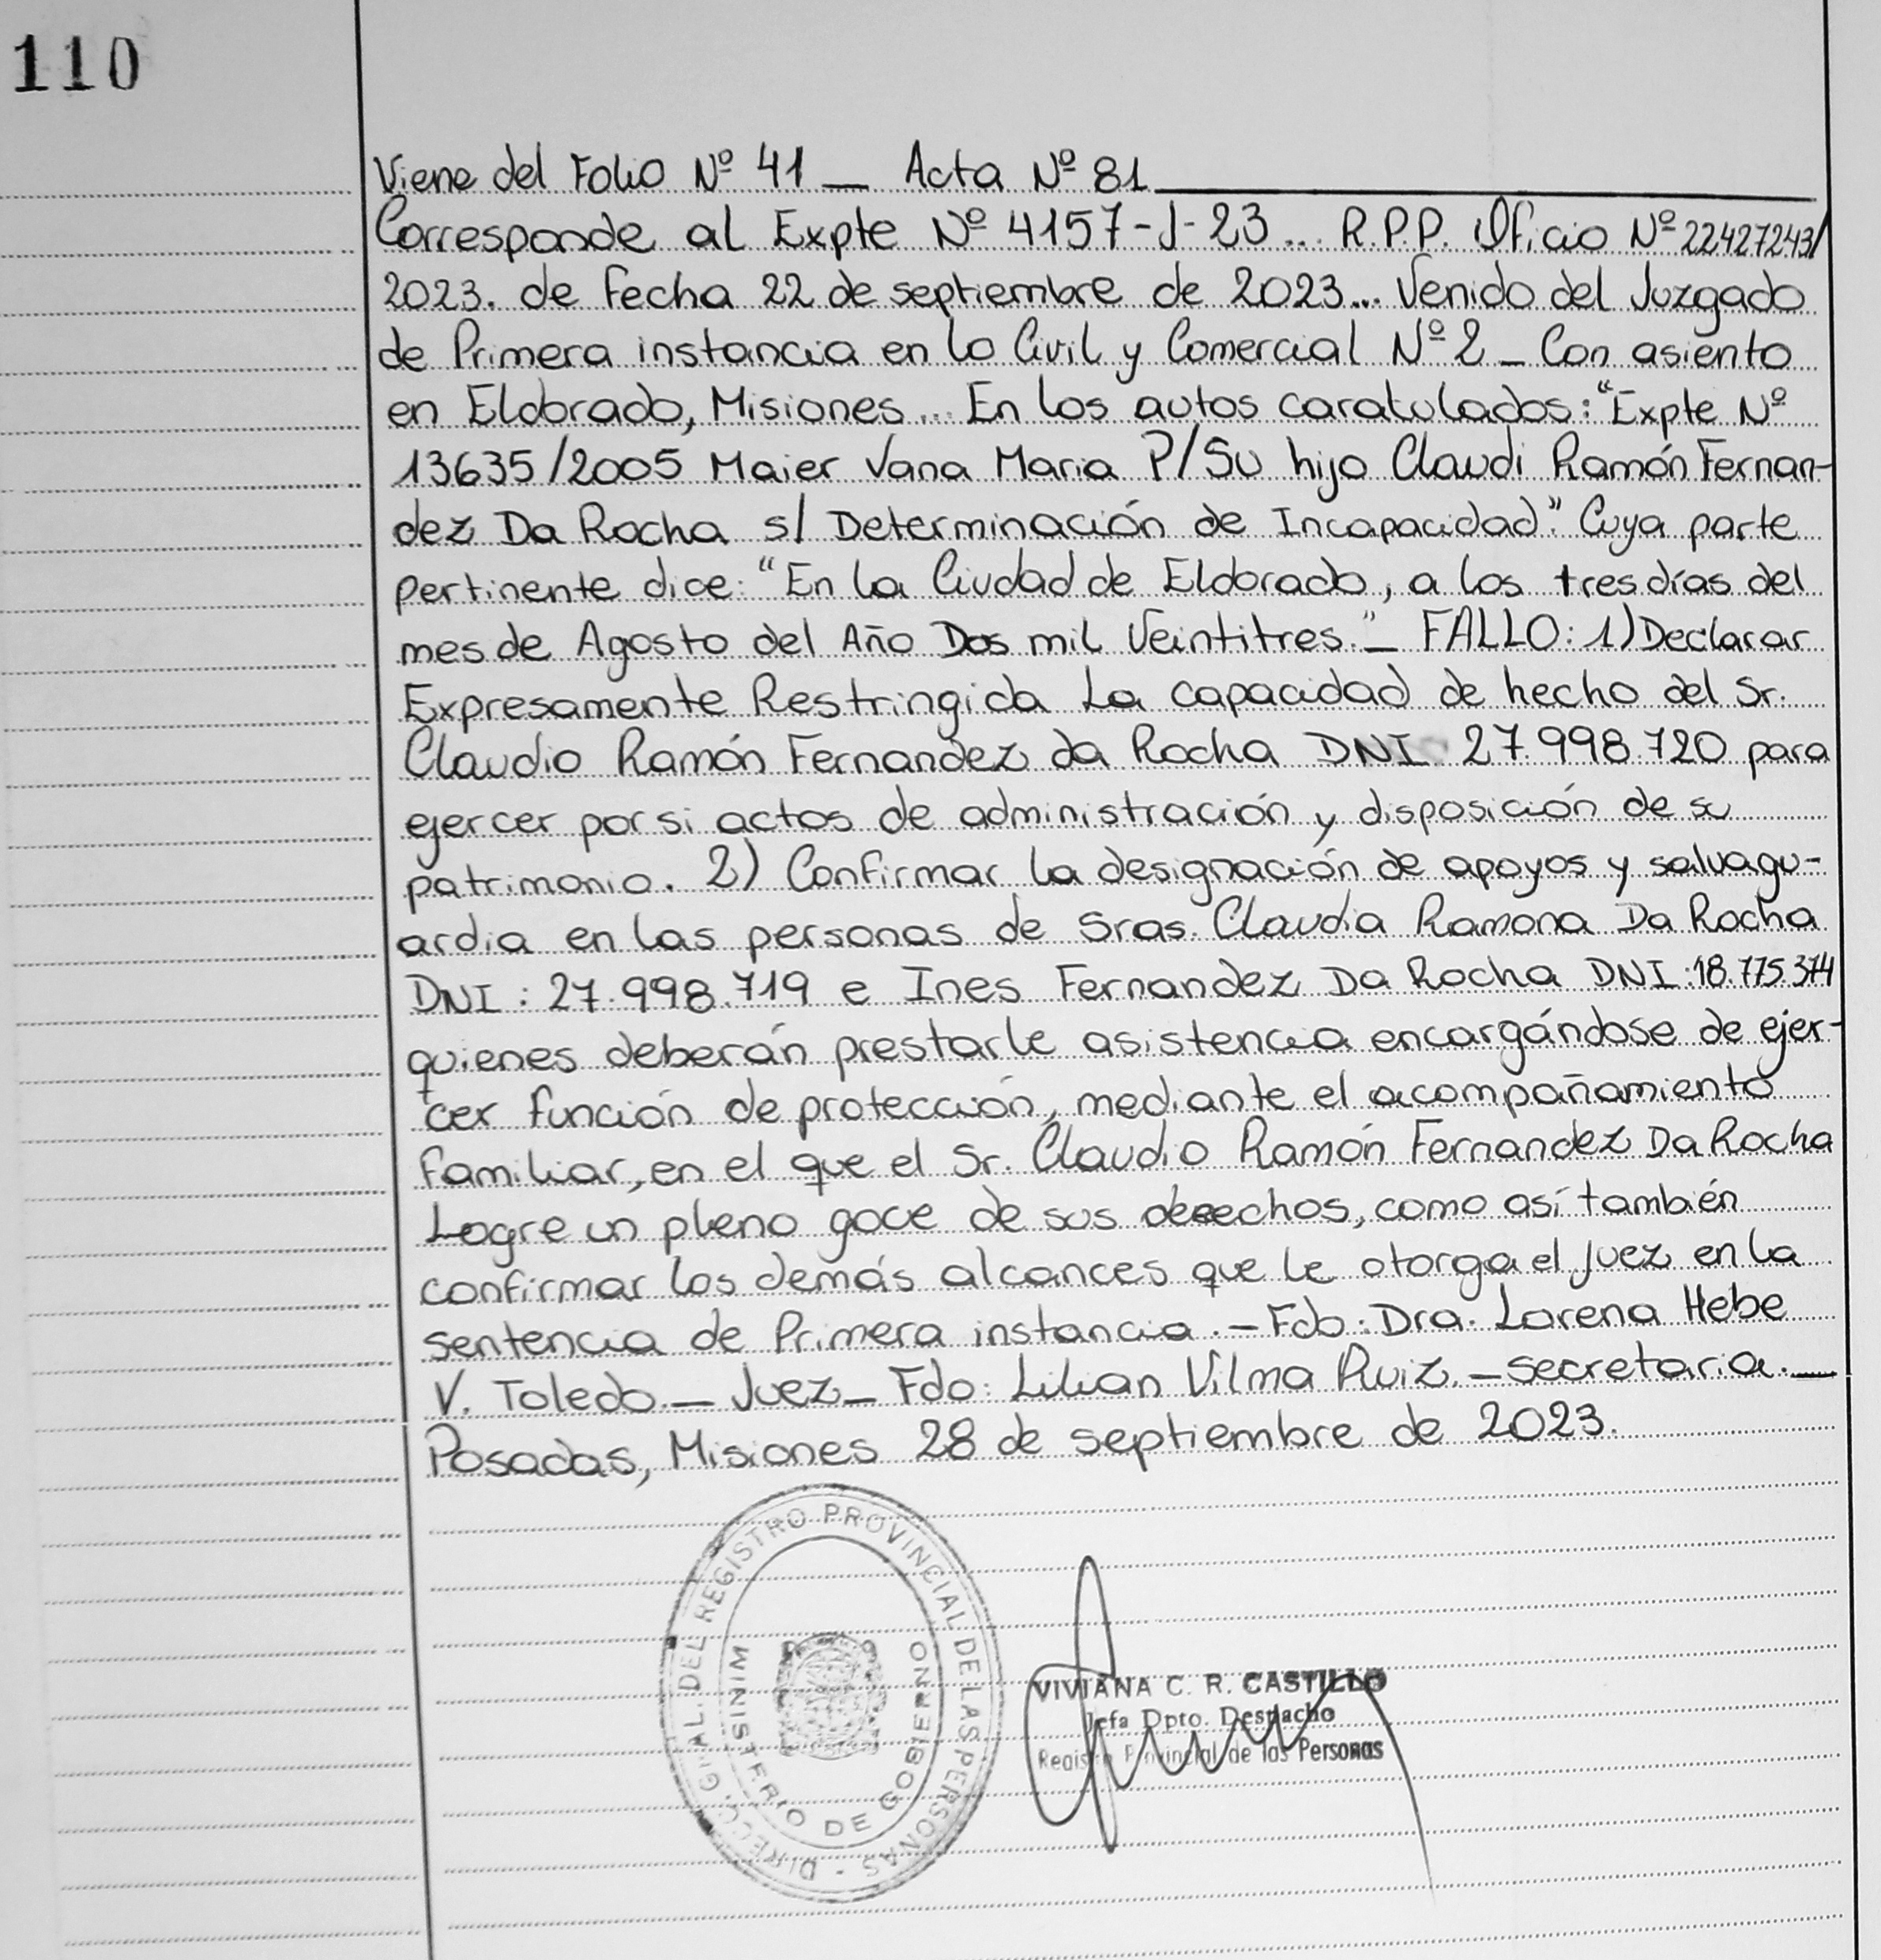 110
Viene del Folio Nº 41 _ Acta Nº 81
Corresponde al Expte Nº 4157-J-23... R.P.P. Oficio Nº 22427243/
2023. de Fecha 22 de septiembre de 2023... Venido del Juzgado
de Primera instancia en lo Civil y Comercial Nº 2 _ Con asiento
en Eldorado, Misiones... En los autos caratulados: "Expte Nº
13635/2005 Maier Vana Maria P/Su hijo Claudi Ramón Fernan-
dez Da Rocha s/ Determinación de Incapacidad". Cuya parte
pertinente dice: "En la Ciudad de Eldorado, a los tres días del
mes de Agosto del Año Dos mil Veintitres." _ FALLO: 1) Declarar
Expresamente Restringida La capacidad de hecho del Sr.
Claudio Ramón Fernandez da Rocha DNI 27.998.720 para
ejercer por si actos de administración y disposición de su
patrimonio. 2) Confirmar la designación de apoyos y salvagu-
ardia en las personas de Sras. Claudia Ramona Da Rocha
DNI: 27.998.719 e Ines Fernandez Da Rocha DNI: 18.775.374
quienes deberán prestarle asistencia encargándose de ejer-
cer función de protección, mediante el acompañamiento
Familiar, en el que el Sr. Claudio Ramón Fernandez Da Rocha
Logre un pleno goce de sus derechos, como así también
confirmar los demás alcances que le otorga el juez en la
sentencia de Primera instancia. - Fdo: Dra. Lorena Hebe
V. Toledo. _ Juez _ Fdo: Lilian Vilma Ruiz. - secretaria. _
Posadas, Misiones 28 de septiembre de 2023.
DIRECC. GRAL. DEL REGISTRO PROVINCIAL DE LAS PERSONAS -
MINISTERIO DE GOBIERNO
VIVIANA C. R. CASTILLO
Jefa Dpto. Despacho
Registro Provincial de las Personas